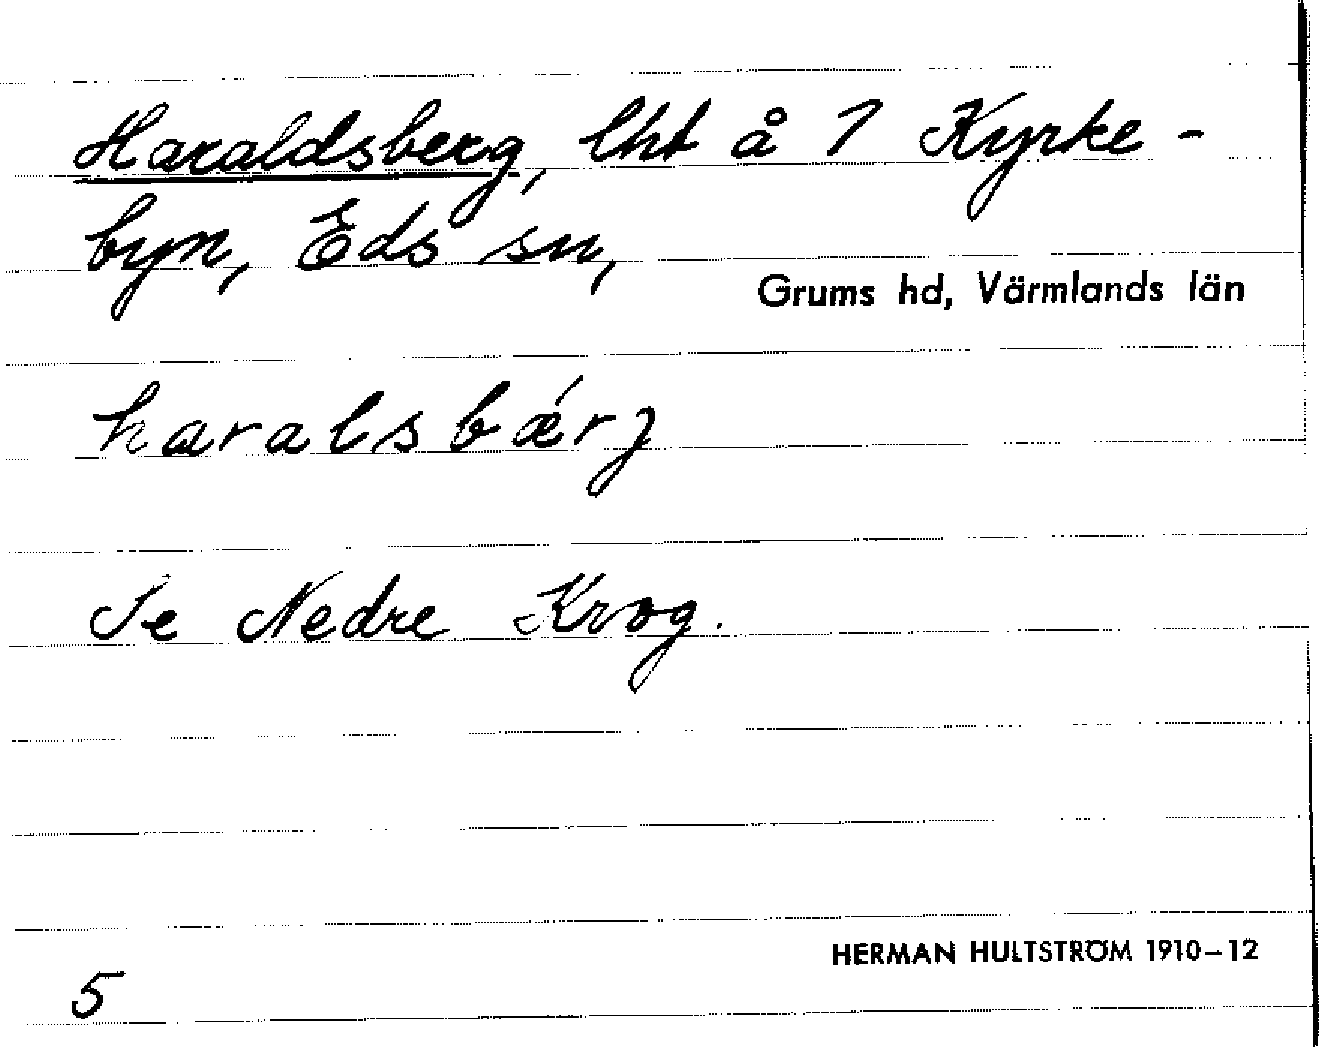 Haraldsberg, lht å 1 Kyrke-
byn, Eds sn,
Grums hd, Värmlands län
haralsbǽrj
Se Nedre Krog.
HERMAN HULTSTRÖM 1910–12
5